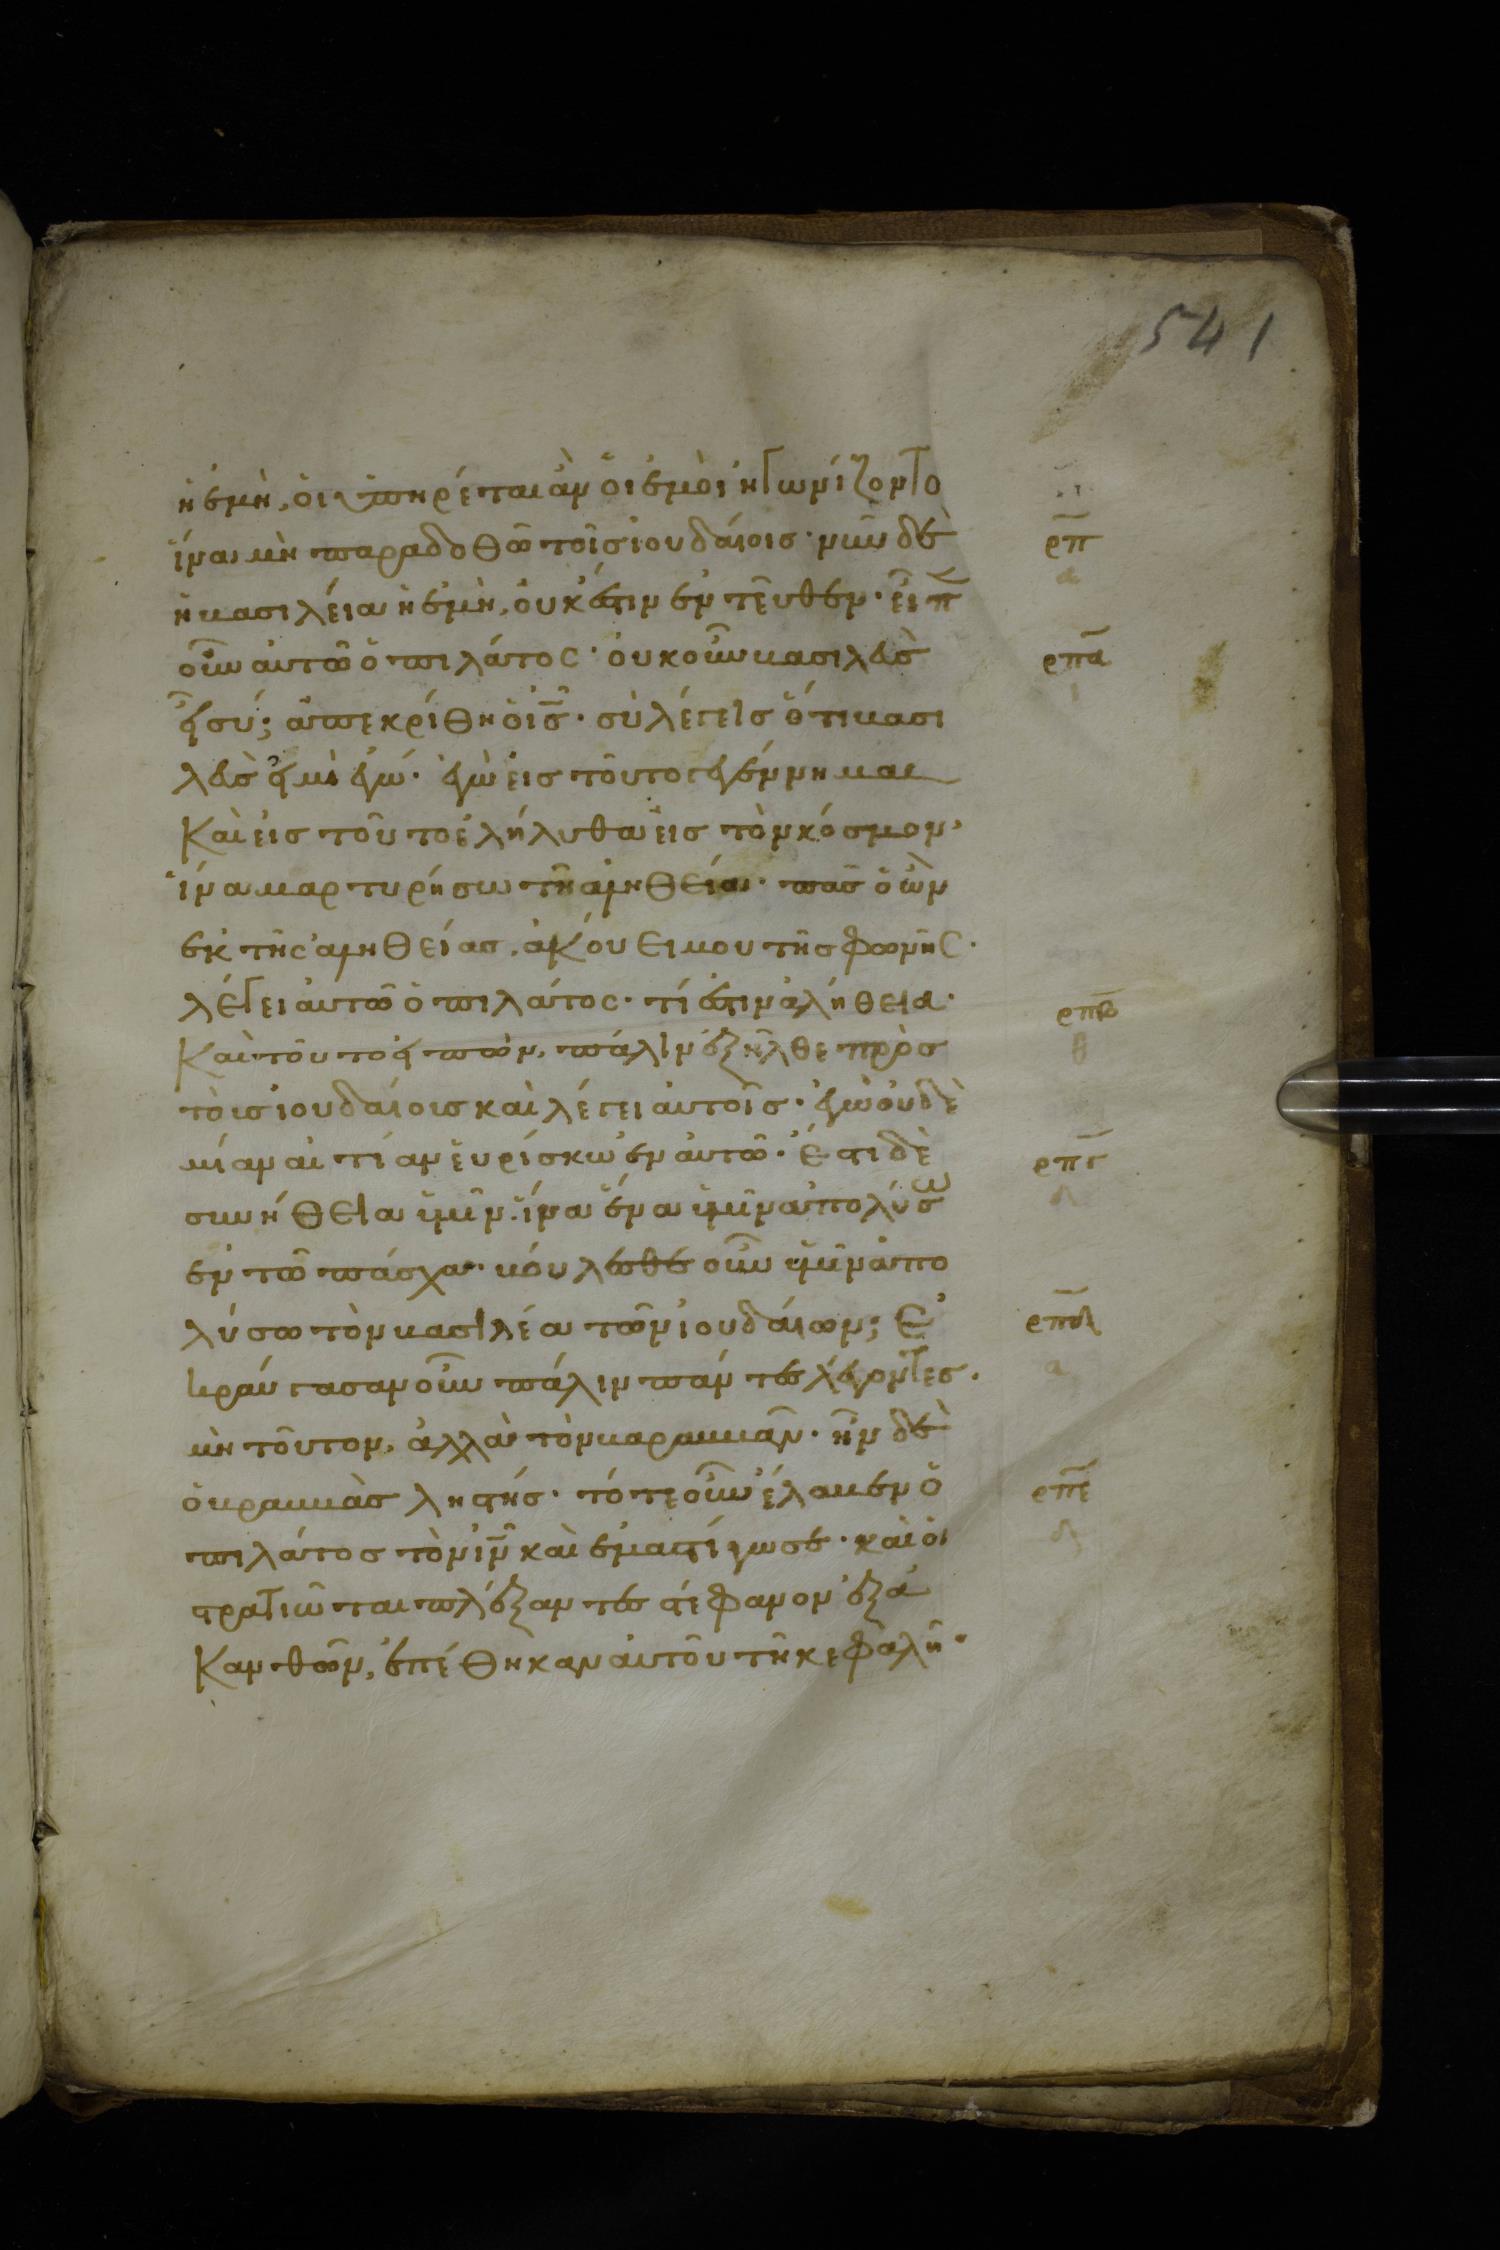 541
ἡ ἐμὴ, οἱ ὑπηρέται ἂν οἱ ἐμοὶ ἠγωνίζοντο
ἵνα μὴ παραδοθῶ τοῖς ἰουδαίοις· νῦν δὲ
ἡ βασιλεία ἡ ἐμὴ, οὐκ ἔστιν ἐντεῦθεν· εἶπ
οὖν αὐτῶ ὁ πιλάτος· οὐκοῦν βασιλεὺς
εἶ σύ; ἀπεκρίθη ὁ ις̅· σὺ λέγεις ὅτι βασι
λεὺς εἰμὶ ἐγώ· ἐγὼ εἰς τοῦτο γεγέννημαι
καὶ εἰς τοῦτο ἐλήλυθα εἰς τὸν κόσμον,
ἵνα μαρτυρήσω τῆ ἀληθεία· πᾶς ὁ ὢν
ἐκ τῆς ἀληθείας, ἀκούει μου τῆς φωνῆς·
λέγει αὐτῶ ὁ πιλάτος· τί ἐστιν ἀλήθεια·
καὶ τοῦτο εἰπὼν, πάλιν ἐξῆλθε πρὸς
τοὺς ἰουδαίοις καὶ λέγει αὐτοῖς· ἐγὼ οὐδὲ
μίαν αἰτίαν εὑρίσκω ἐν αὐτῶ· ἔστι δὲ
συνήθεια ὑμῖν· ἵνα ἕνα ὑμῖν ἀπολύσω
ἐν τῶ πάσχα· βούλεσθε οὖν ὑμῖν ἀπο
λύσω τὸν βασιλέα τῶν ἰουδαίων; Ἐ
κραύγασαν οὖν πάλιν πάντες λέγοντες·
μὴ τοῦτον, ἀλλὰ τὸν βαραββᾶν· ἦν δὲ
ὁ βραββὰς ληστής· τότε οὖν ἔλαβεν ὁ
πιλάτος τὸν ιν̅ καὶ ἐμαστίγωσε· καὶ οἱ
στρατιῶται πλέξαντες στέφανον ἐξ ἀ
κανθῶν, ἐπέθηκαν αὐτοῦ τῆ κεφαλῆ·
ρπ
α
ρπα
ι
ρπβ
θ
ρπγ
δ
ρπδ
α
ρπε
δ